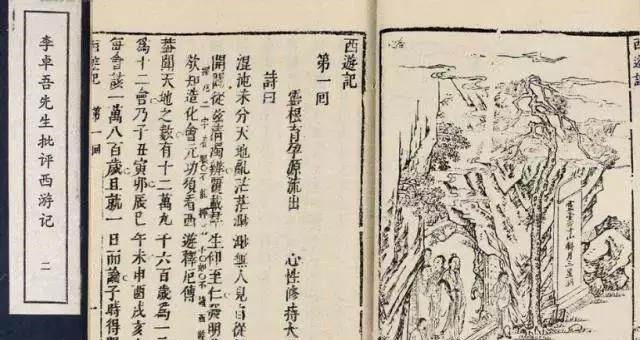 西遊記
靈臺方寸山斜月三星洞
西遊記
第一回
靈根育孕源流出 心性修持大
詩曰
混沌未分天地亂茫茫渺渺無人見自從
開闢從茲清濁辨覆載羣生仰至仁發明
欲知造化會元功須看西遊釋厄傳
釋厄二字着眼不能釋厄不如不讀西遊
蓋聞天地之數有十二萬九千六百歲為一
為十二會乃子丑寅卯辰巳午未申酉戌亥
每會該一萬八百歲且就一日而論子時得陽
西遊記 第一回
李卓吾先生批评西游记 二